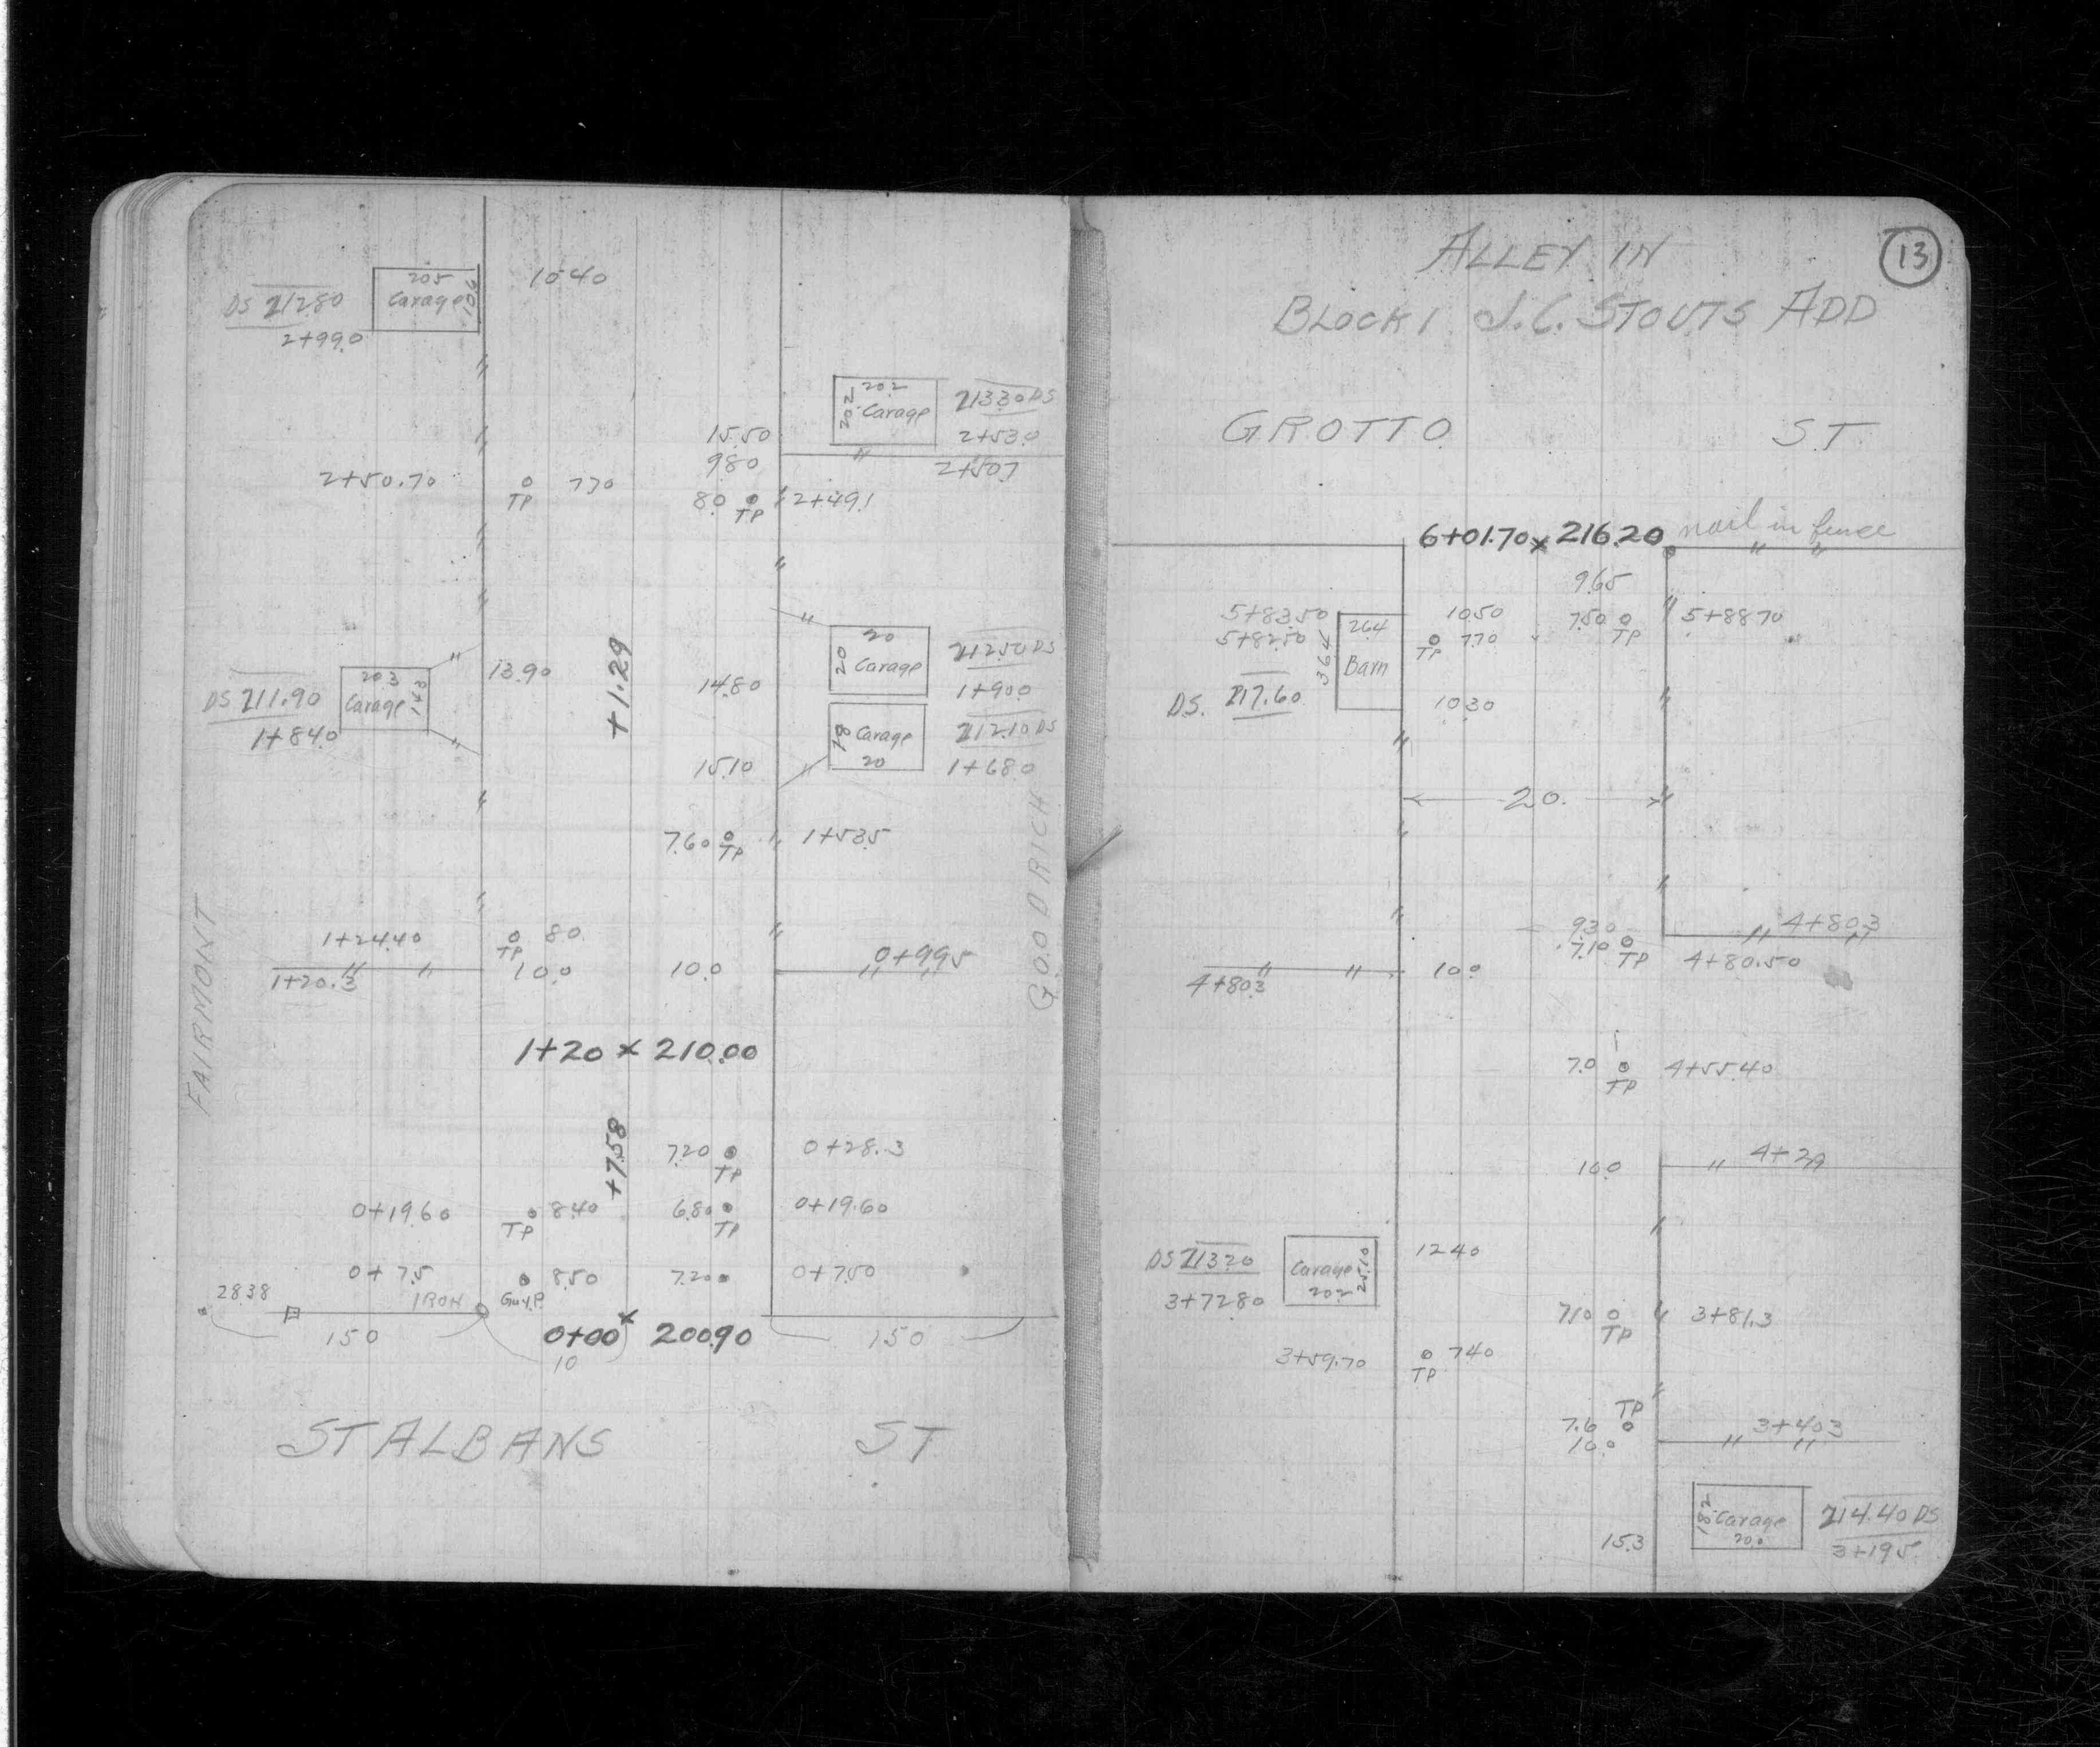 205
1040
Garage
106
DS 212.80
2+99.0
20.2
20.2
Garage
213.30 DS
15.50
2+53.0
9.80
2+50.7
2+50.70
TP
7.70
8.0
TP
2+49.1
20
20
Garage
212.50 DS
1+90.0
20.3
13.90
+1.29
14.80
DS 211.90
Garage
1+84.0
18
Garage
20
212.10 DS
15.10
1+68.0
7.60
TP
1+53.5
GOODRICH
FAIRMONT
1+24.40
TP
8.0
0+99.5
1+20.3
10.0
10.0
1+20 x 210.00
+7.58
7.20
TP
0+28.3
0+19.60
TP
8.40
6.80
TP
0+19.60
0+7.5
8.50
7.20
0+7.50
28.38
IRON
Guy P.
150
0+00 x 200.90
150
10
ST ALBANS ST
13
ALLEY IN
BLOCK 1 J.C. STOUTS ADD
GROTTO ST.
6+01.70 x 216.20 nail in fence
9.65
5+83.50
26.4
10.50
7.50
TP
5+88.70
5+82.50
TP
7.70
36.4
Barn
D.S. 217.60
10.30
20.
9.30
4+80.3
7.10
TP
4+80.50
4+80.3
10.0
7.0
TP
4+55.40
10.0
4+29
DS 213.20
Garage
20.2
25.10
12.40
3+72.80
7.10
TP
3+81.3
3+59.70
TP
7.40
TP
7.6
10.0
3+40.3
18.2
Garage
20.0
214.40 DS
15.3
3+19.5